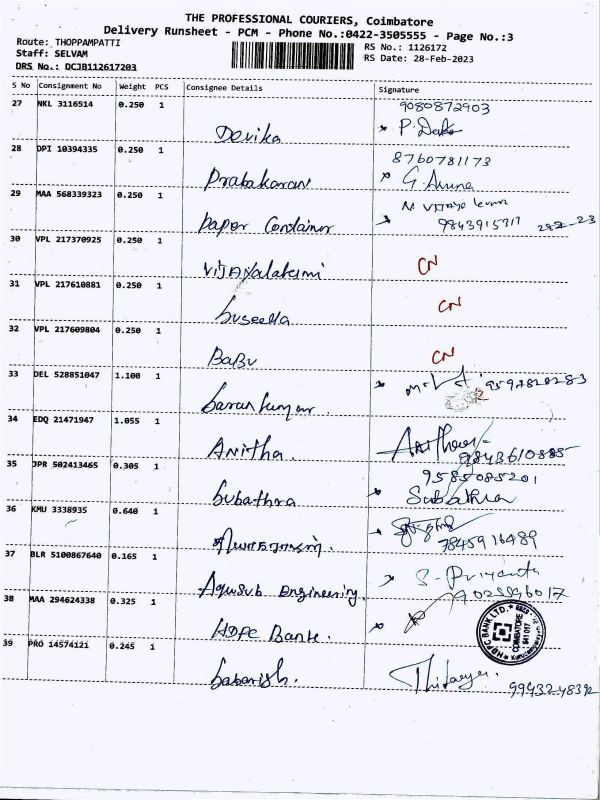 THE PROFESSIONAL COURIERS, Coimbatore
Delivery Runsheet - PCM - Phone No.:0422-3505555 - Page No.:3
Route: THOPPAMPATTI
Staff: SELVAM
DRS No.: DCJB112617203
RS No.: 1126172
RS Date: 28-Feb-2023
S No Consignment No Weight PCS Consignee Details Signature
27 NKL 3116514 0.250 1 Devika 9080872903
28 DPI 10394335 0.250 1 Prabakaran 8760781173
29 MAA 568339323 0.250 1 Paper Container 9843915317
30 VPL 217370925 0.250 1 Vijayalakshmi CN
31 VPL 217610881 0.250 1 Suseela CN
32 VPL 217609804 0.250 1 Babu CN
33 DEL 528851047 1.100 1 Saran kumar
34 EDQ 21471947 1.055 1 Anitha. 9843610885
35 JPR 502413465 0.305 1 Subathra 9585085201
Subathra
36 KMU 3338935 0.640 1 7845916489
37 BLR 5100867640 0.165 1 Aquasub Engineering. S. Priyanta
38 MAA 294624338 0.325 1 HDFC Bank.
HDFC BANK LTD.
COIMBATORE
641 017
39 PRO 14574121 0.245 1 Sabarish.